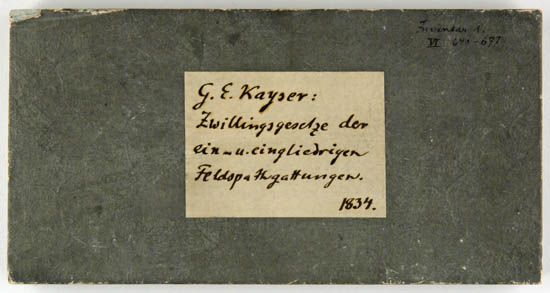 Inventar
VI 640-677
G. E. Kayser:
Zwillingsgesetze der
ein- u. eingliedrigen
Feldspathgattungen.
1834.